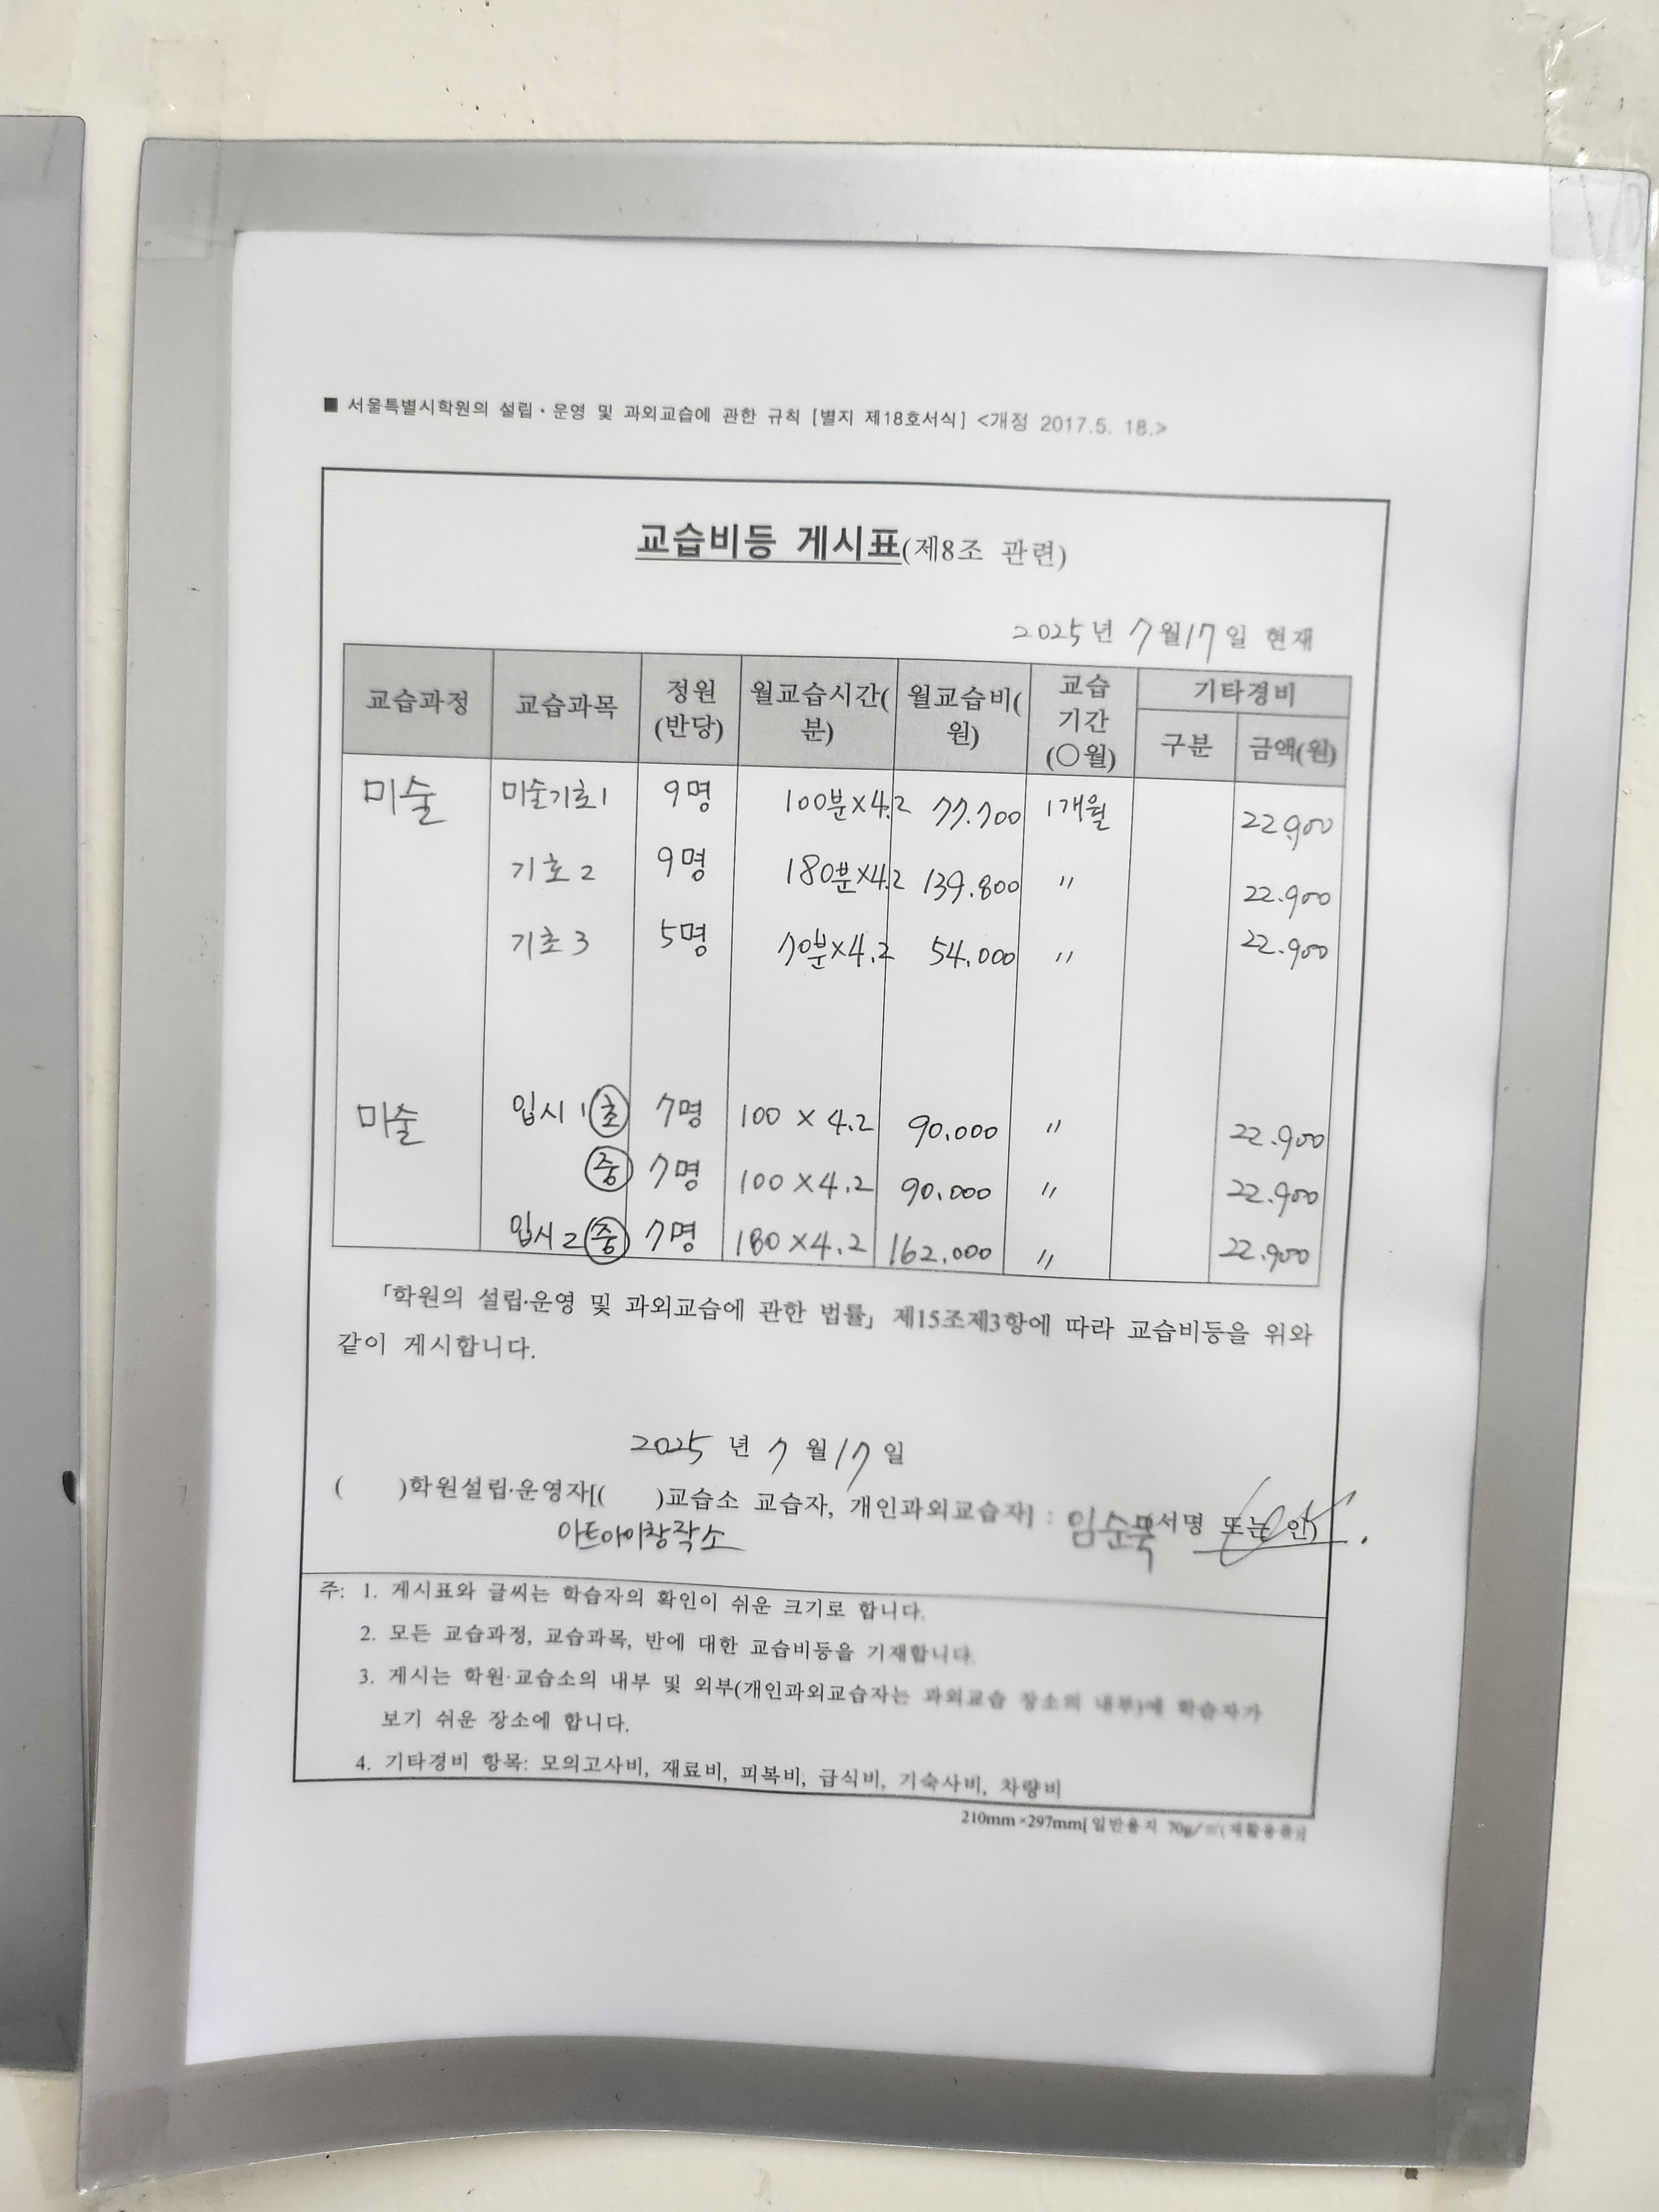 ■ 서울특별시학원의 설립·운영 및 과외교습에 관한 규칙 [별지 제18호서식] <개정 2017.5. 18.>
교습비등 게시표(제8조 관련)
2025년 7월17일 현재
교습과정 교습과목 정원(반당) 월교습시간(분) 월교습비(원) 교습기간(○월) 기타경비
구분 금액(원)
미술 미술기초1 9명 100분×4.2 77.700 1개월 22.900
기초2 9명 180분×4.2 139.800 〃 22.900
기초3 5명 70분×4.2 54.000 〃 22.900
미술 입시1 초 7명 100×4.2 90.000 〃 22.900
중 7명 100×4.2 90.000 〃 22.900
입시2 중 7명 180×4.2 162.000 〃 22.900
「학원의 설립·운영 및 과외교습에 관한 법률」 제15조제3항에 따라 교습비등을 위와
같이 게시합니다.
2025 년 7 월 17 일
( )학원설립·운영자[( )교습소 교습자, 개인과외교습자] : 임순묵 서명 또는 인)
아트아이창작소
주: 1. 게시표와 글씨는 학습자의 확인이 쉬운 크기로 합니다.
2. 모든 교습과정, 교습과목, 반에 대한 교습비등을 기재합니다.
3. 게시는 학원·교습소의 내부 및 외부(개인과외교습자는 과외교습 장소의 내부)에 학습자가
보기 쉬운 장소에 합니다.
4. 기타경비 항목: 모의고사비, 재료비, 피복비, 급식비, 기숙사비, 차량비
210mm×297mm[일반용지 70g/㎡(재활용품)]